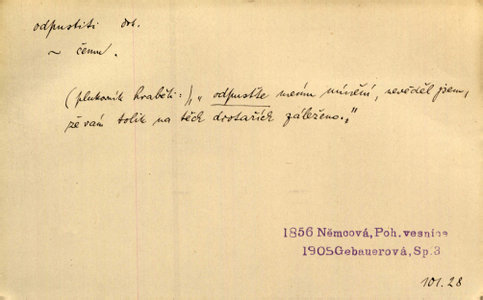 odpustiti dok.
~ čemu.
(plukovník hraběti:) „odpusťte mému mínění, nevěděl jsem,
že vám tolik na těch drotařích záleženo."
1856 Němcová, Poh. vesnice
1905 Gebauerová, Sp. 3
101.28